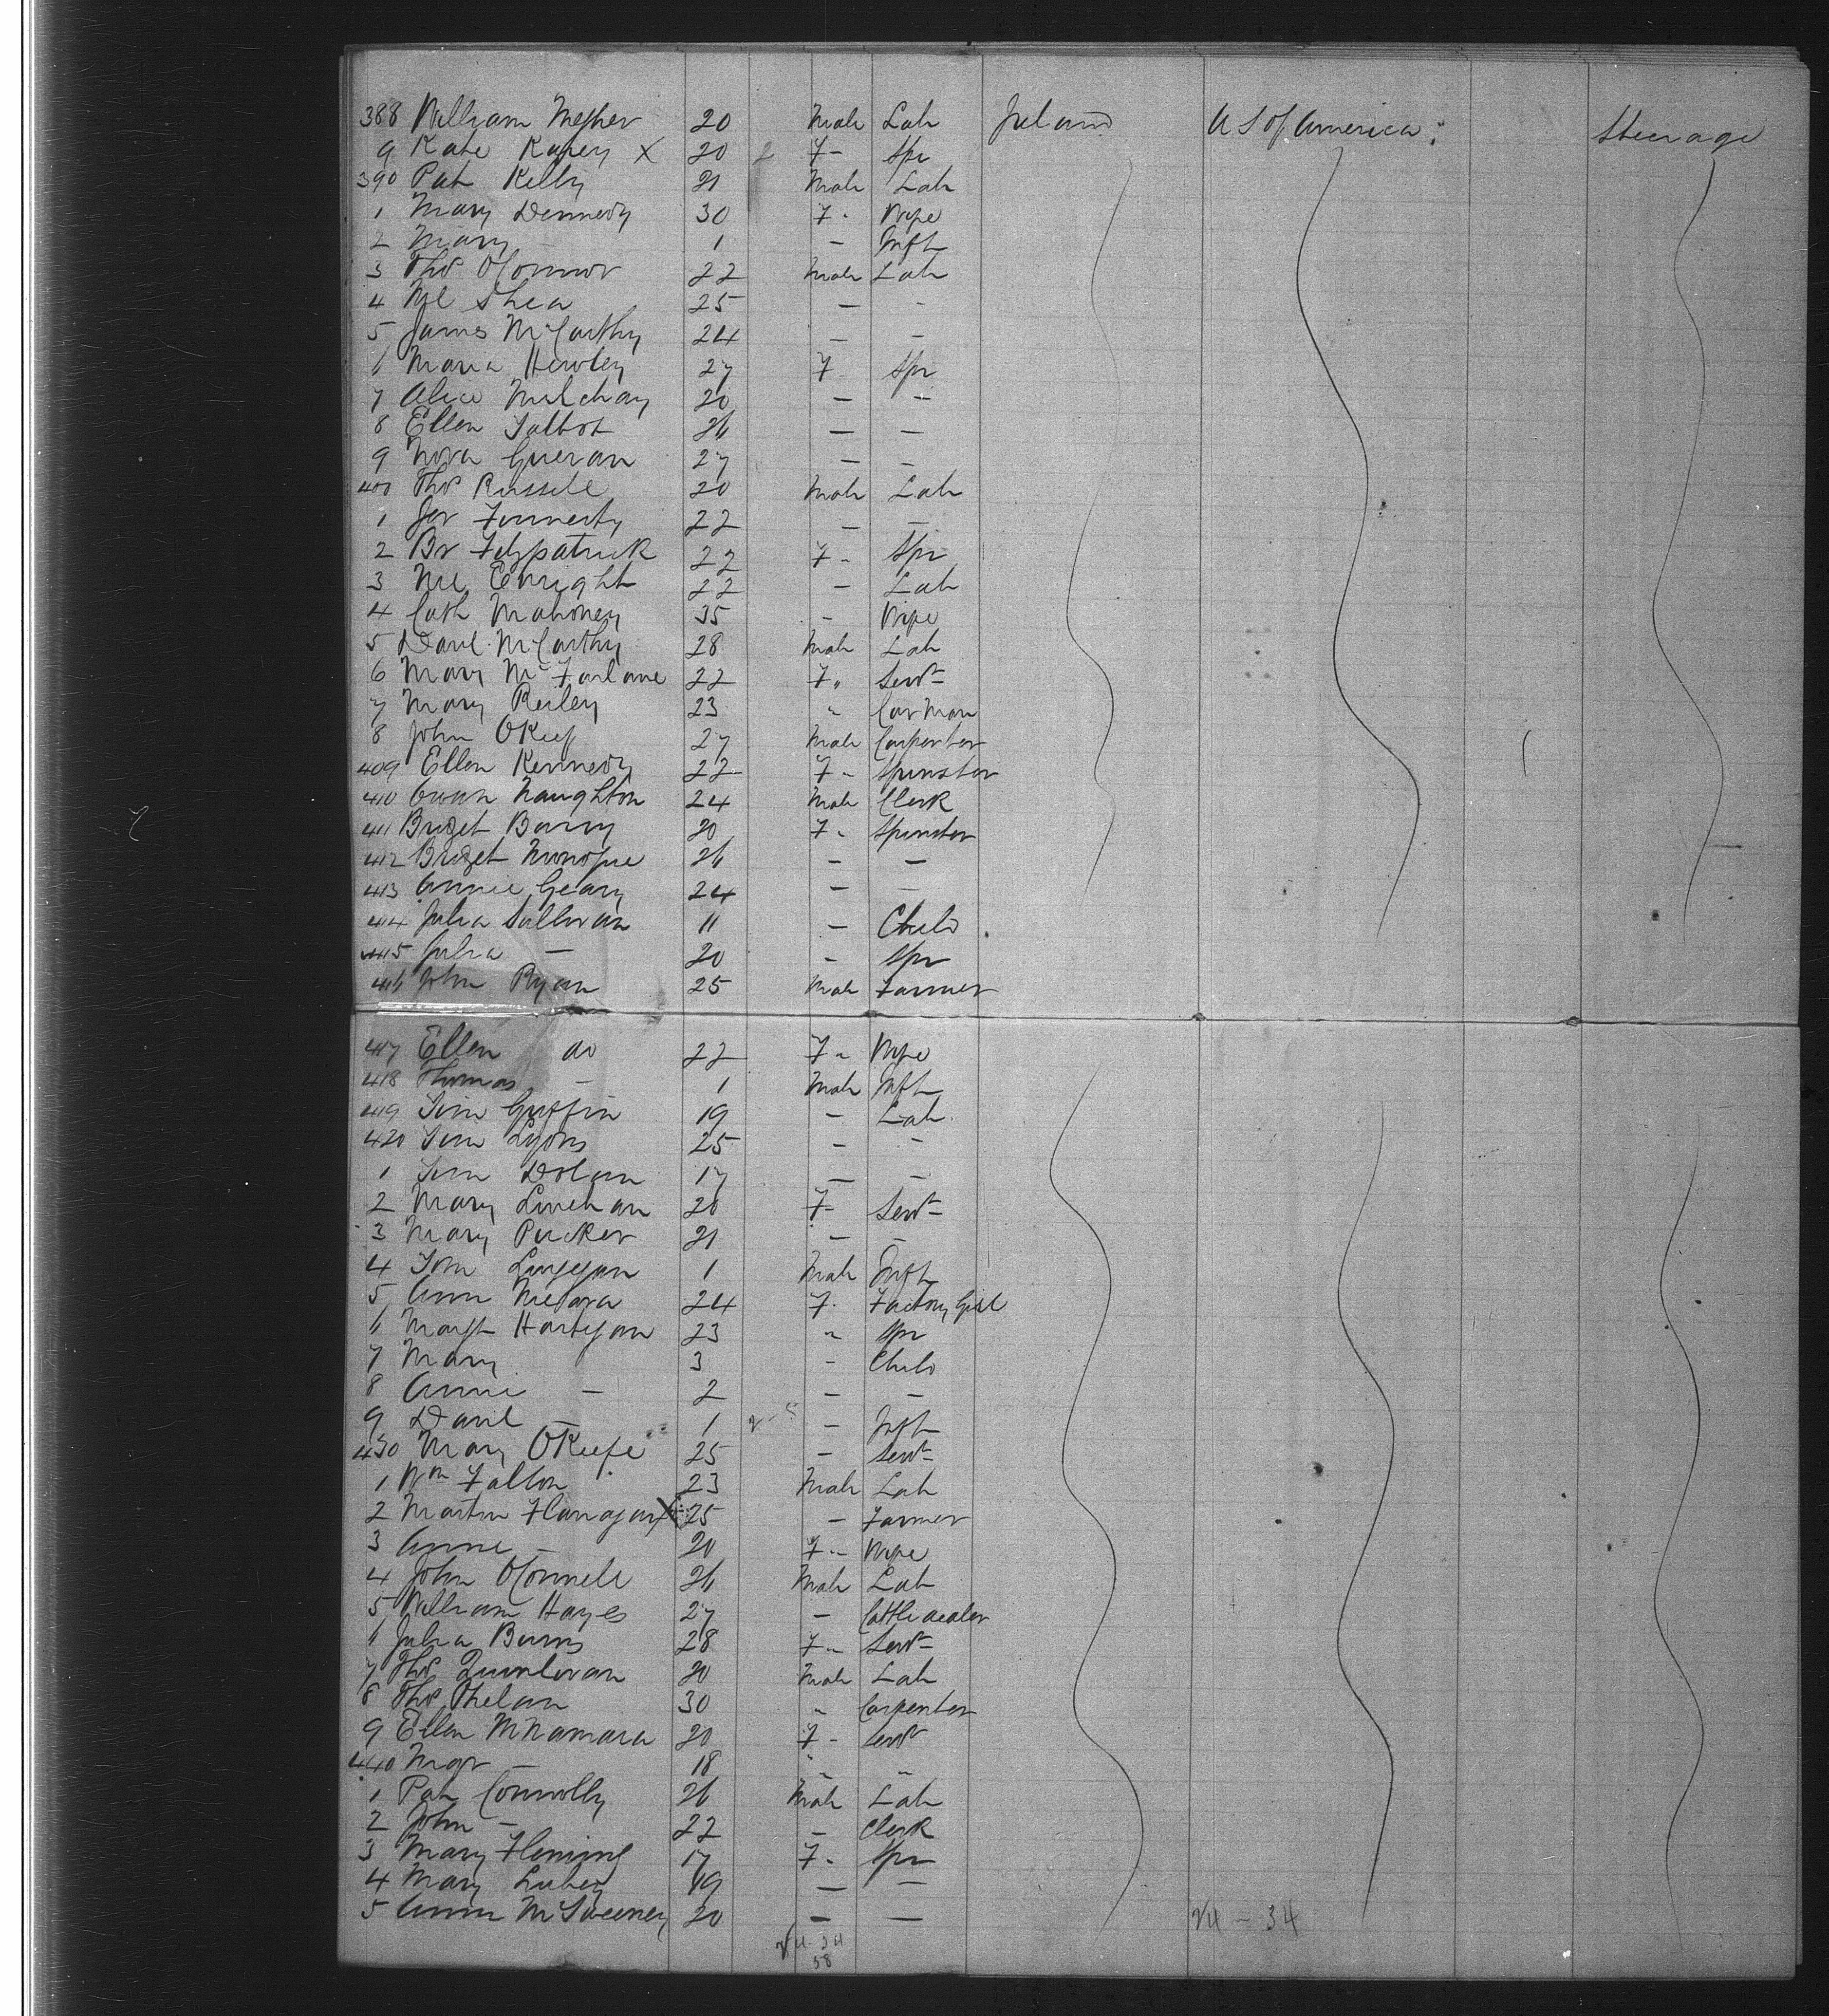 388 William Mesher 20 Male Lab Ireland U S of America Steerage
9 Kate X 20 F - Spr
390 Pat Kelly 21 Male Lab
1 Mary Dennedy 30 F - Wife
2 Mary - 1 - Inft
3 Thos OConnor 22 Male Lab
4 Ml Shea 25 - -
5 James McCarthy 24 - -
6 Maria Hewley 27 F Spr
7 Alice Mulchay 20 - -
8 Ellen Talbot 26 - -
9 Nora Gueran 27 - -
400 Thos Russell 20 Male Lab
1 Jer Finnerty 22 - -
2 Br Fitzpatrick 22 F - Spr
3 Ml Enright 22 - Lab
4 Cath Mahoney 35 - Wife
5 Danl McCarthy 28 Male Lab
6 Mary McFarlane 22 F " Servt
7 Mary Reiley 23 " Car Man
8 John OKeef 27 Male Carpenter
409 Ellen Kennedy 22 F - Spinster
410 Owen Naughton 24 Male Clerk
411 Bridget Barry 20 F - Spinster
412 Bridget 26 - -
413 Annie Geary 24 - -
414 Julia Sullivan 11 - Child
415 Julia - 20 - Spr
416 John Ryan 25 Male Farmer
417 Ellen do 22 F - Wife
418 Thomas - 1 Male Inft
419 Tim Griffin 19 - Lab
420 Tim Lyons 25 - -
1 Tim Dolan 17 - -
2 Mary Linehan 20 F - Servt
3 Mary Pucker 21 - -
4 Tom 1 Male Inft
5 Ann 24 F - Factory Girl
6 Margt Hartigan 23 " Spr
7 Mary 3 - Child
8 Annie - 2 - -
9 Danl - 1 - Inft
430 Mary OKeefe 25 - Servt
1 Wm Fallon 23 Male Lab
2 Martin Flanagan X 25 - Farmer
3 Anne - 20 F - Wife
4 John OConnell 26 Male Lab
5 William Hayes 27 - Cattle dealer
6 Julia Burns 28 F - Servt
7 Thos Quinlivan 20 Male Lab
8 Thos Phelan 30 " Carpenter
9 Ellen McNamara 20 F - Servt
440 Mgr - 18 " "
1 Pat Connolly 26 Male Lab
2 John - 22 - Clerk
3 Mary Fleming 17 F - Spr
4 Mary Luhey 19 - -
5 Annie McSweeney 20 - -
24 - 34
24 - 34
58